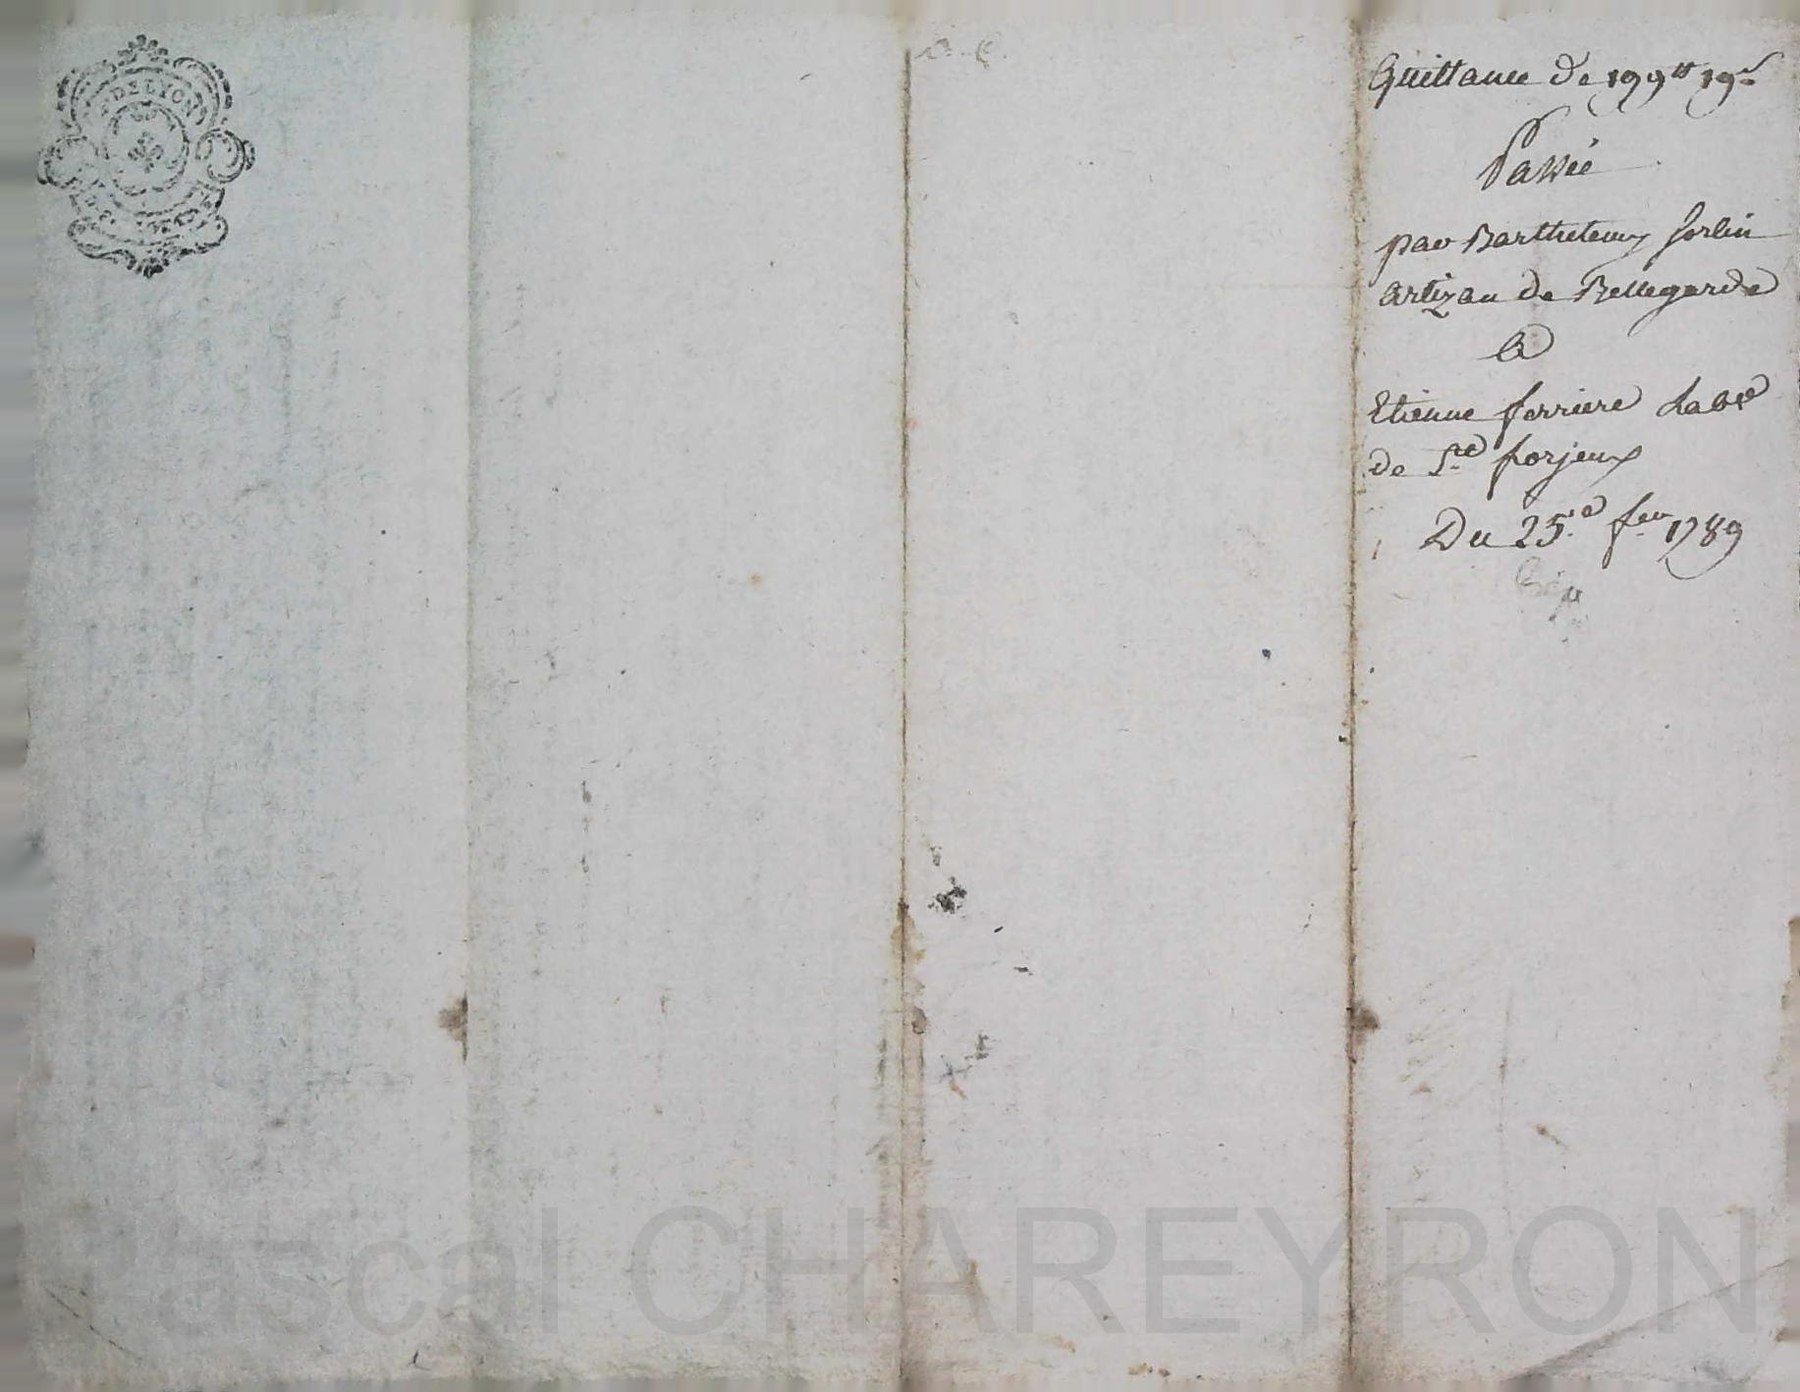 DE LYON
Quittance de 199tt 19s
Passée
par Barthelemy Jorlin
artizan de Bellegarde
A
Etienne ferriere Labr
de St forjeux
Du 25e fer 1789
Pascal CHAREYRON